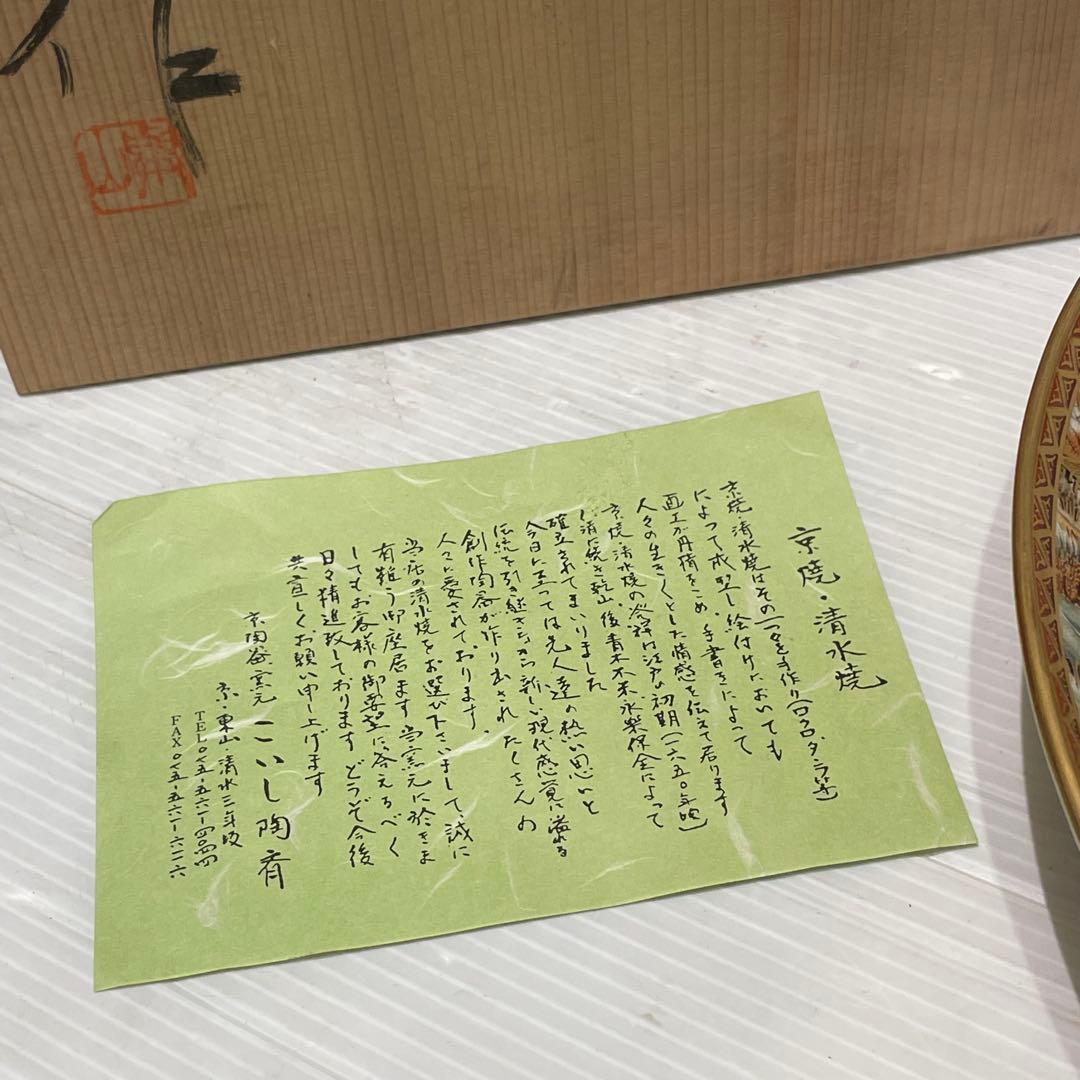 作
京焼・清水焼
京焼・清水焼はその一つ一つを手作り(ロクロ、タタラ等)
によって成型し絵付けにおいても
画工が丹精をこめ、手書きによって
人々の生き〱とした情感を伝えて居ります
京焼・清水焼の発祥は江戸初期(一六五〇年頃)
仁清に続き乾山、後青木木米、永楽保全によって
確立されてまいりました
今日に至っては先人達の熱い思いと
伝統を引き継ぎながら新しい現代感覚に溢れる
創作陶器が作り出され、たくさんの
人々に愛されております。
当店の清水焼をお選び下さいまして誠に
有難う御座居ます 当窯元に於きま
してもお客様の御要望に答えるべく
日々精進致しております どうぞ今後
共宜しくお願い申し上げます
京陶磁窯元 こいし陶斉
京・東山・清水三年坂
TEL〇七五-五六一-四〇四四
FAX〇七五-五六一-六二一六